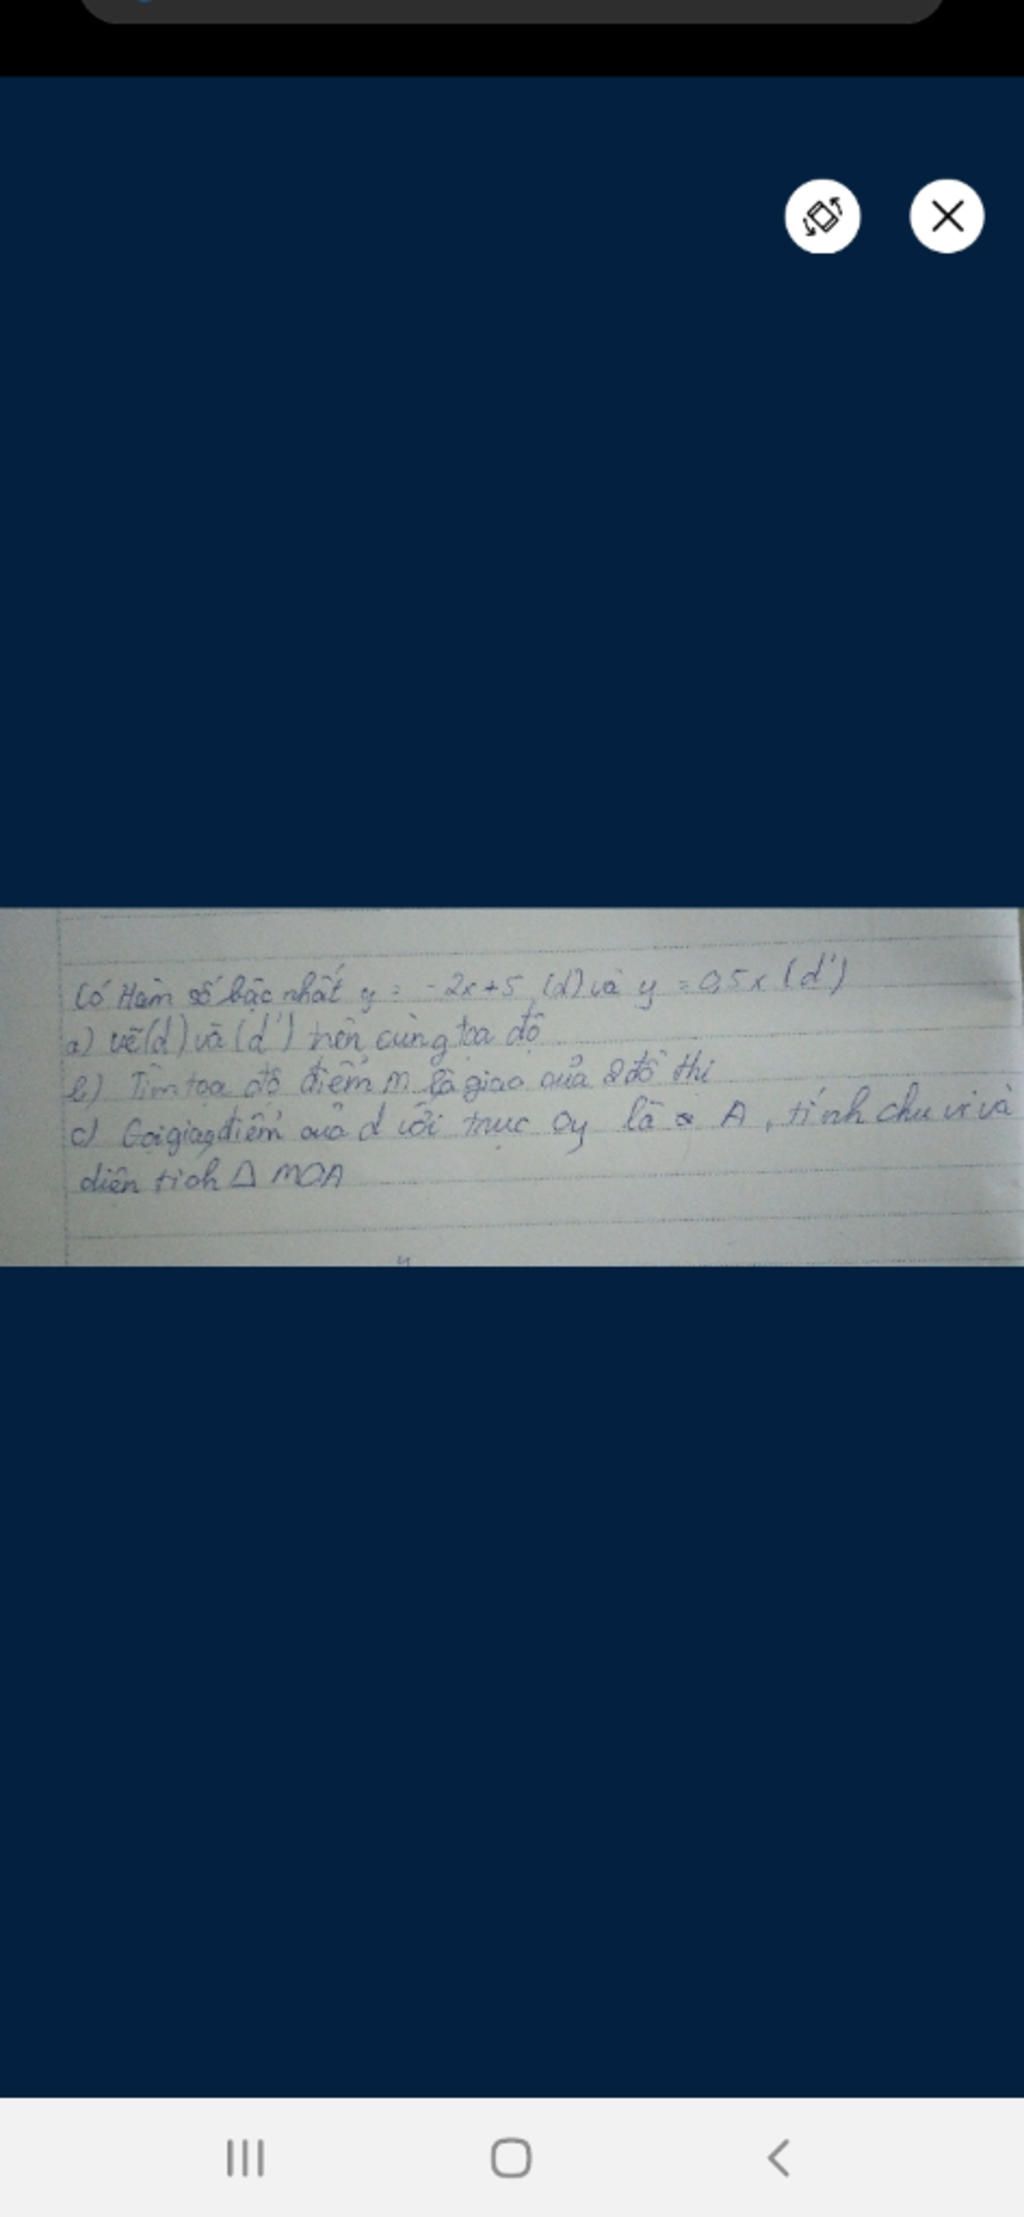 Có Hàm số bậc nhất y = -2x+5 (d) và y = 0,5x (d')
a) vẽ (d) và (d') trên cùng tọa độ
b) Tìm tọa độ điểm M là giao của 2 đồ thị
c) Gọi giao điểm của d với trục Oy là A, tính chu vi và
diện tích Δ MOA